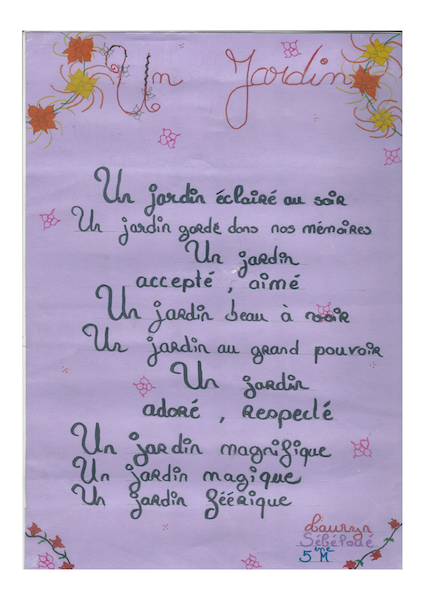 Un Jardin
Un jardin éclairé au soir
Un jardin gardé dans nos mémoires
Un jardin
accepté, aimé
Un jardin beau à voir
Un jardin au grand pouvoir
Un jardin
adoré, respecté
Un jardin magnifique
Un jardin magique
Un jardin féérique
5ème M